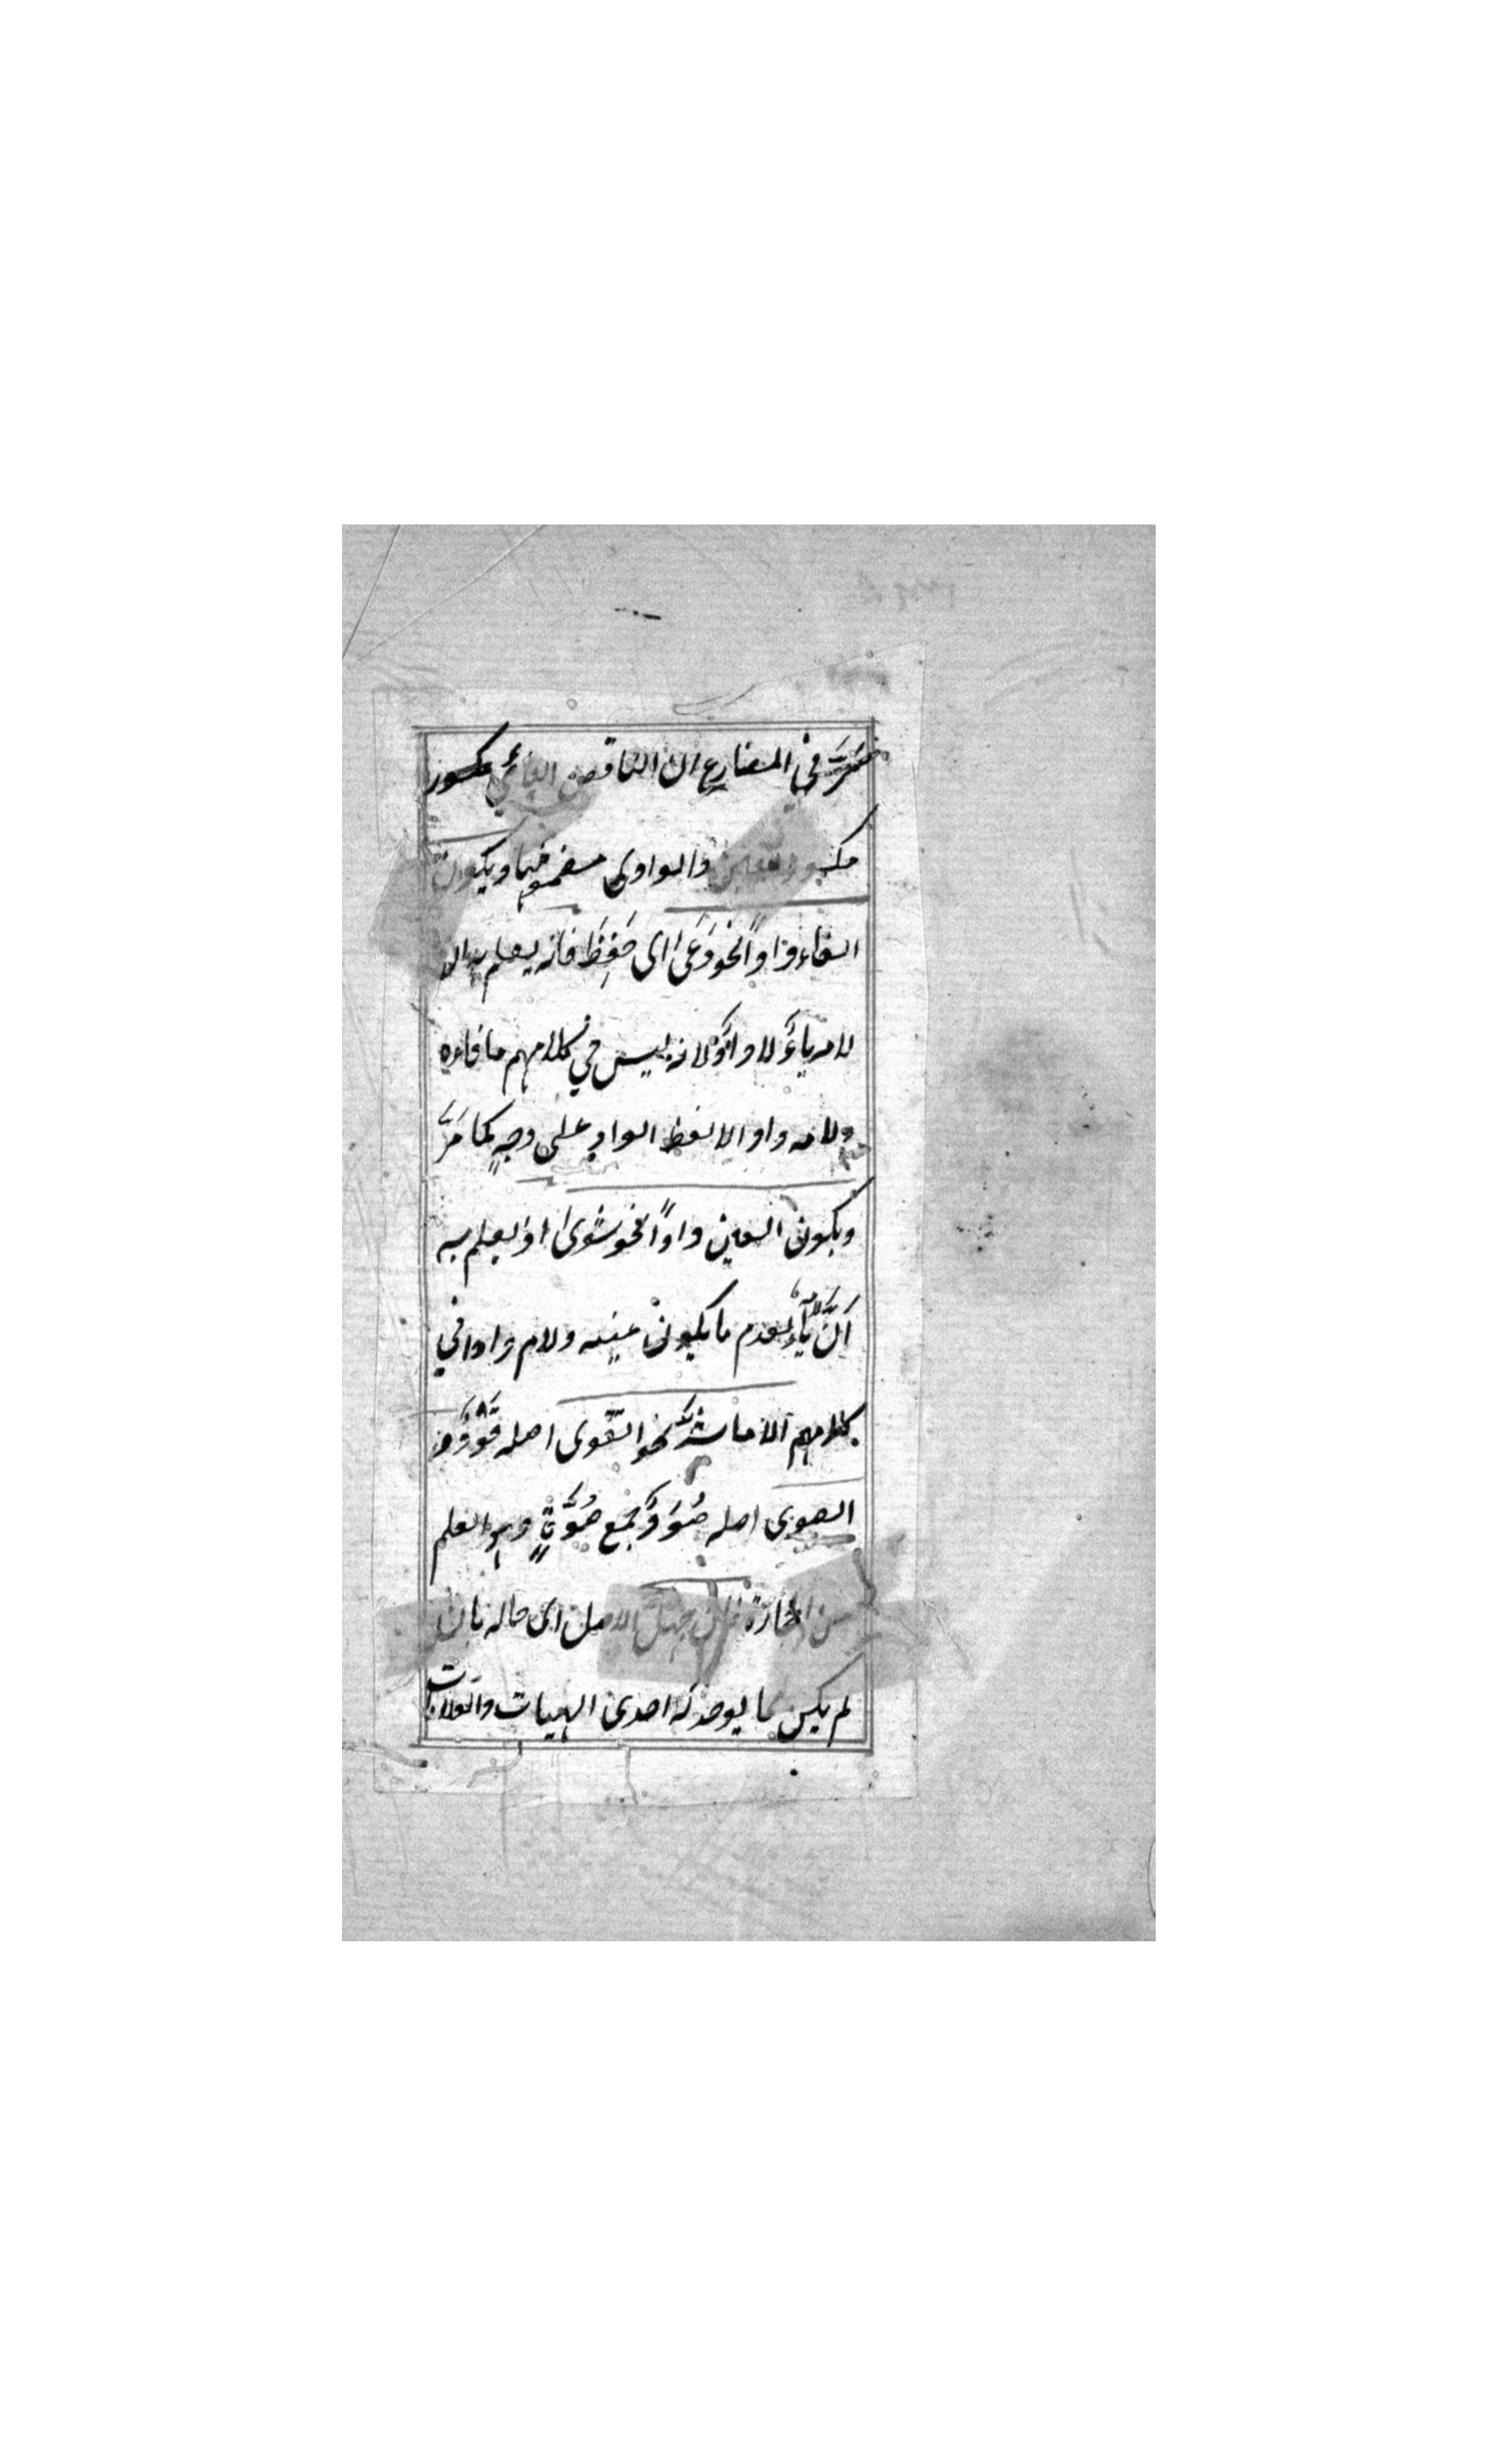 مَرَّ في المضارع ان الناقص اليائي مكسور
مكسور العين والواوى مضمومها ويكون
الفاء واوًا نحو وَعَىٰ اى حَفِظَ فانه يعلم به ان
لامه ياءٌ لا واوٌ لانه ليس في كلامهم ما فاءه
ولامه واو الا لفظ الواو على وجهٍ كما مَرَّ
وبكون العين واوًا نحو شوىٰ اذ يعلم به
اَنَّ ياءٌ لعدم ما يكون عينه ولام واوا في
كلامهم الا ما شذّ نحو القوى اصله قُوَوٌ و
الصوى اصله صُوَوٌ جمع صُوَّةٍ وهو العلم
من الحجارة فان جهل الاصل اى حاله بان
لم يكن مما يوجد له احدى الهيات والعلامات